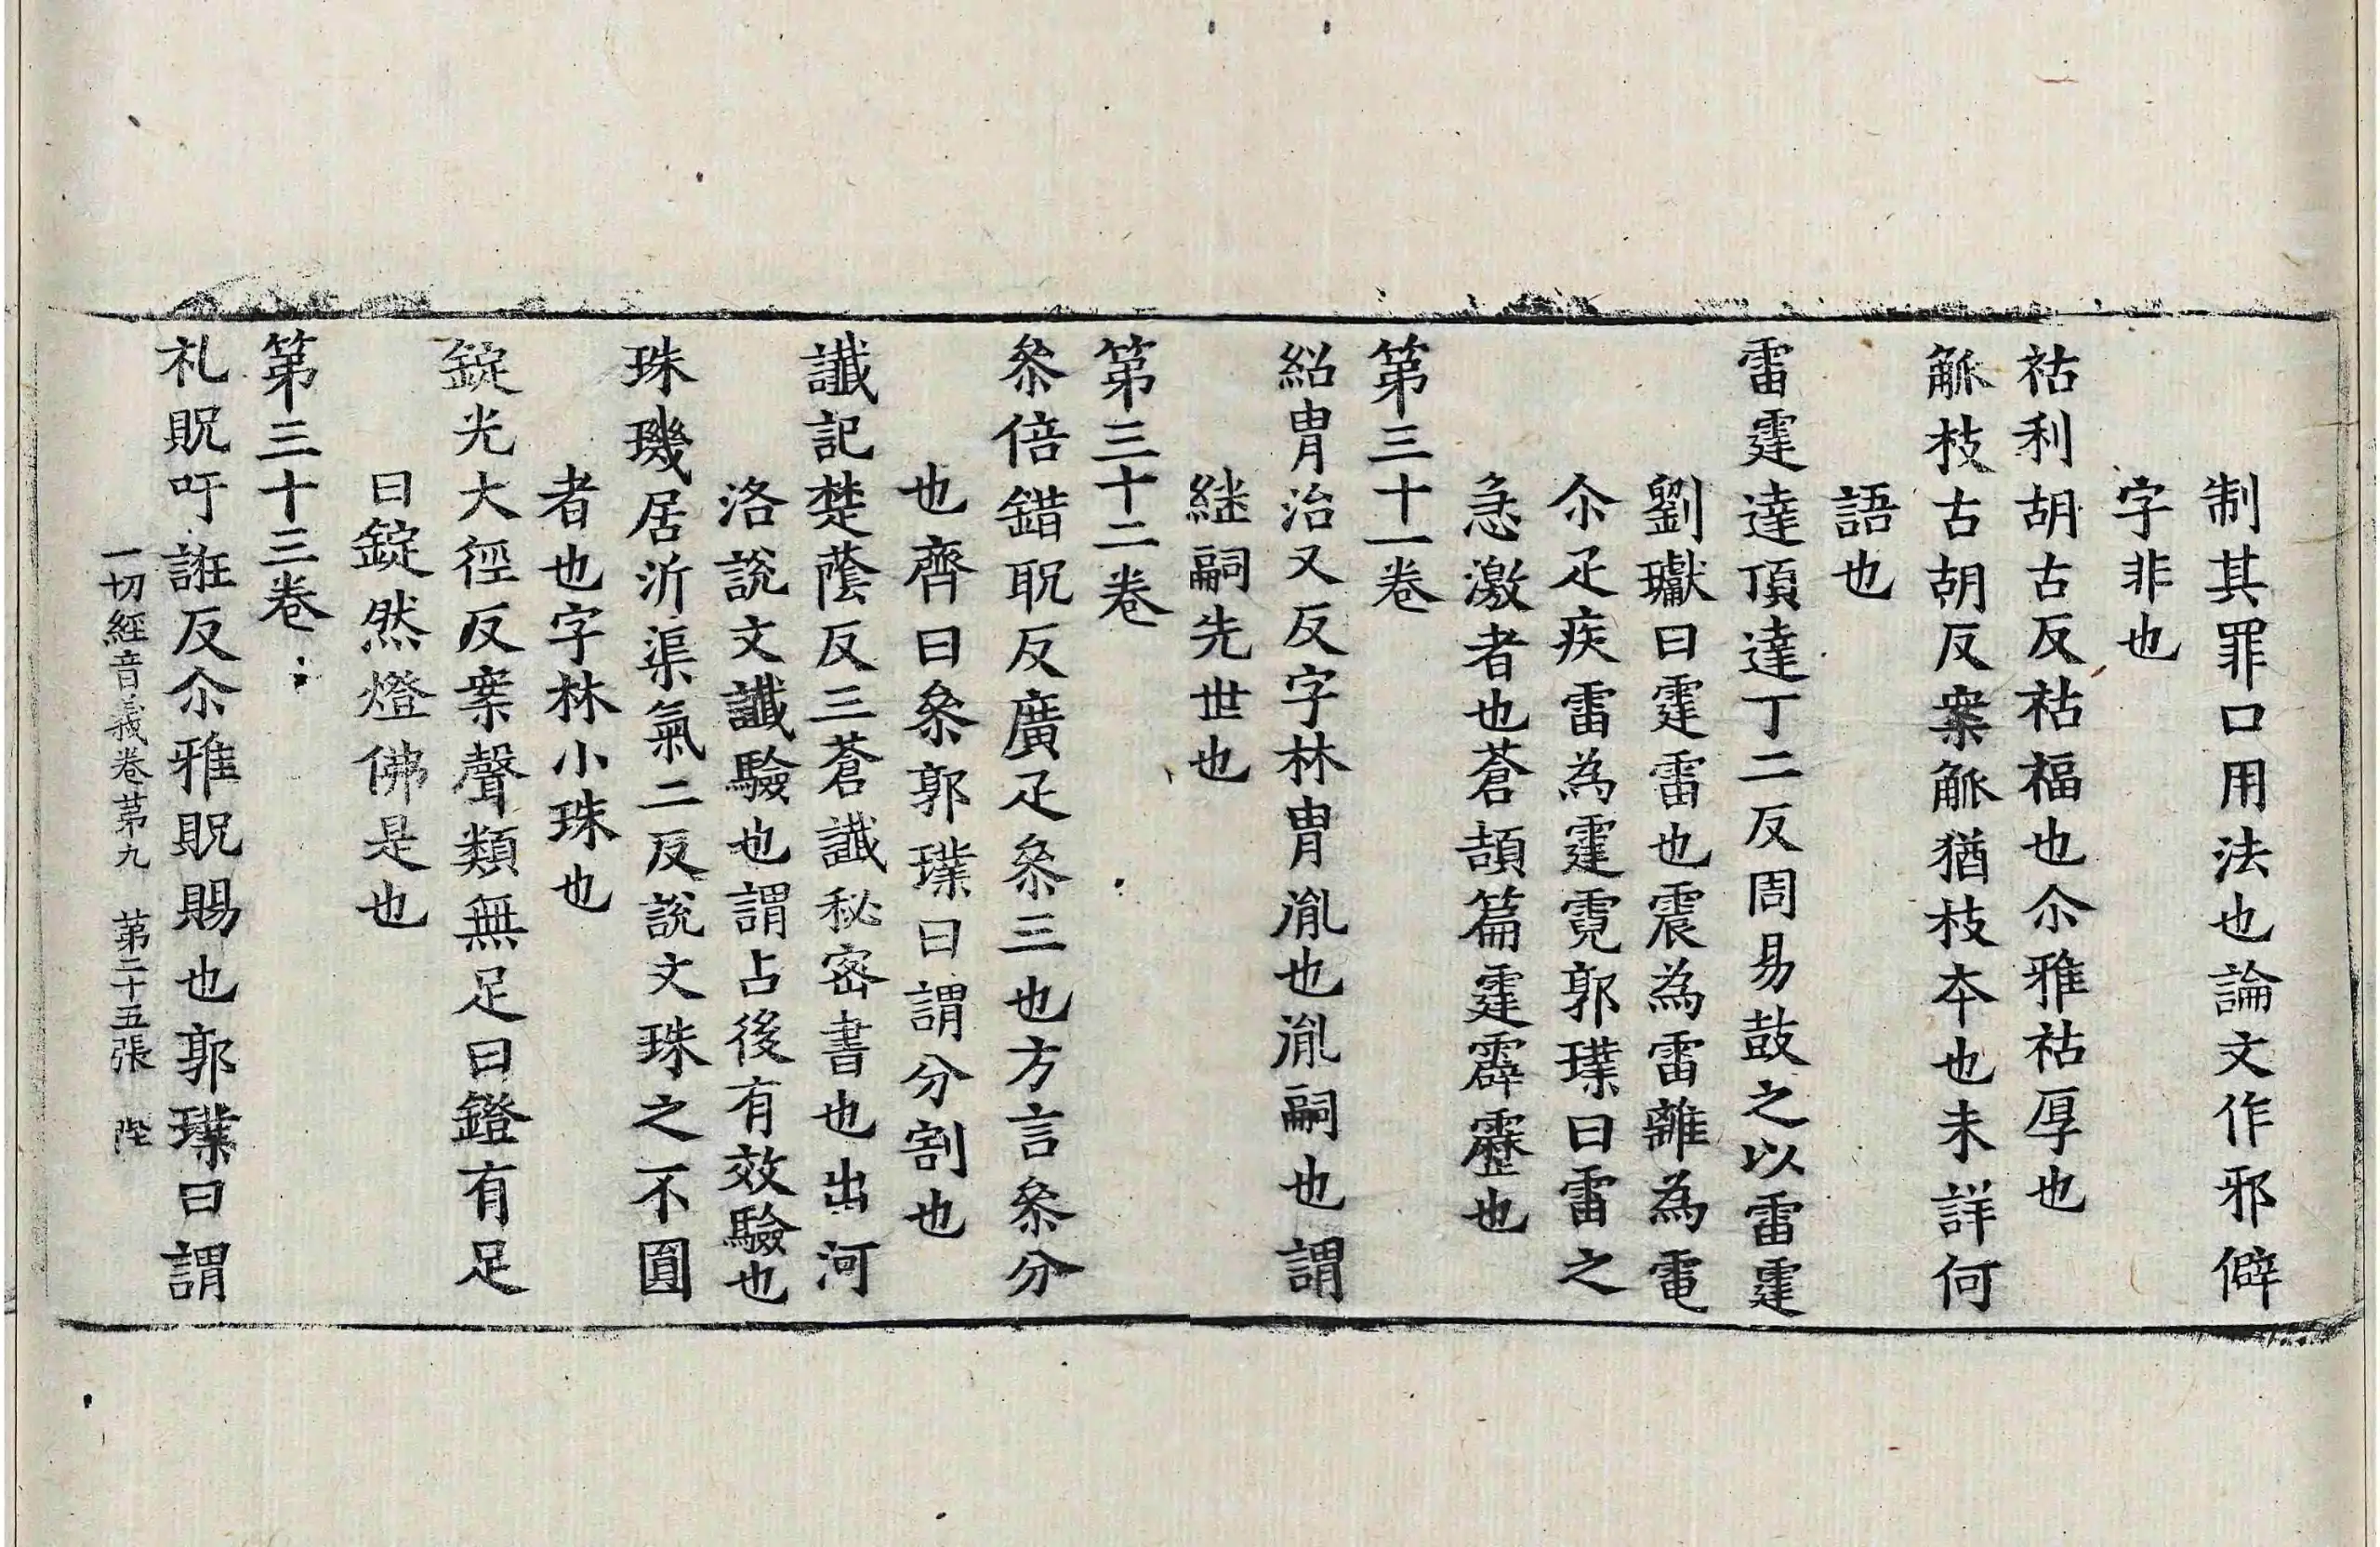 制其罪口用法也論文作邪僻
字非也
祜利胡古反祜福也尒雅祜厚也
觚枝古胡反案觚猶枝本也未詳何
語也
雷霆達頂達丁二反周易鼓之以雷霆
劉瓛曰霆雷也震為雷離為電
尒疋疾雷為霆霓郭璞曰雷之
急激者也蒼頡篇霆霹靂也
第三十一卷
紹胄治又反字林胄胤也胤嗣也謂
継嗣先世也
第三十二卷
叅倍錯躭反廣疋叅三也方言叅分
也齊曰叅郭璞曰謂分割也
讖記楚蔭反三蒼讖秘密書也出河
洛說文讖驗也謂占後有效驗也
珠璣居沂渠氣二反說文珠之不圓
者也字林小珠也
錠光大徑反案聲類無足曰鐙有足
曰錠然燈佛是也
第三十三卷
礼貺吁誑反尒雅貺賜也郭璞曰謂
一切經音義卷苐九 苐二十五張 陛